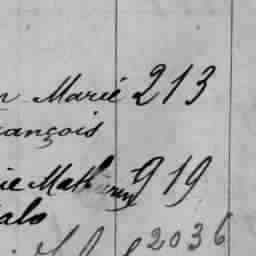 Marie 213
ançois
ie Mathurin 919
alo
2036